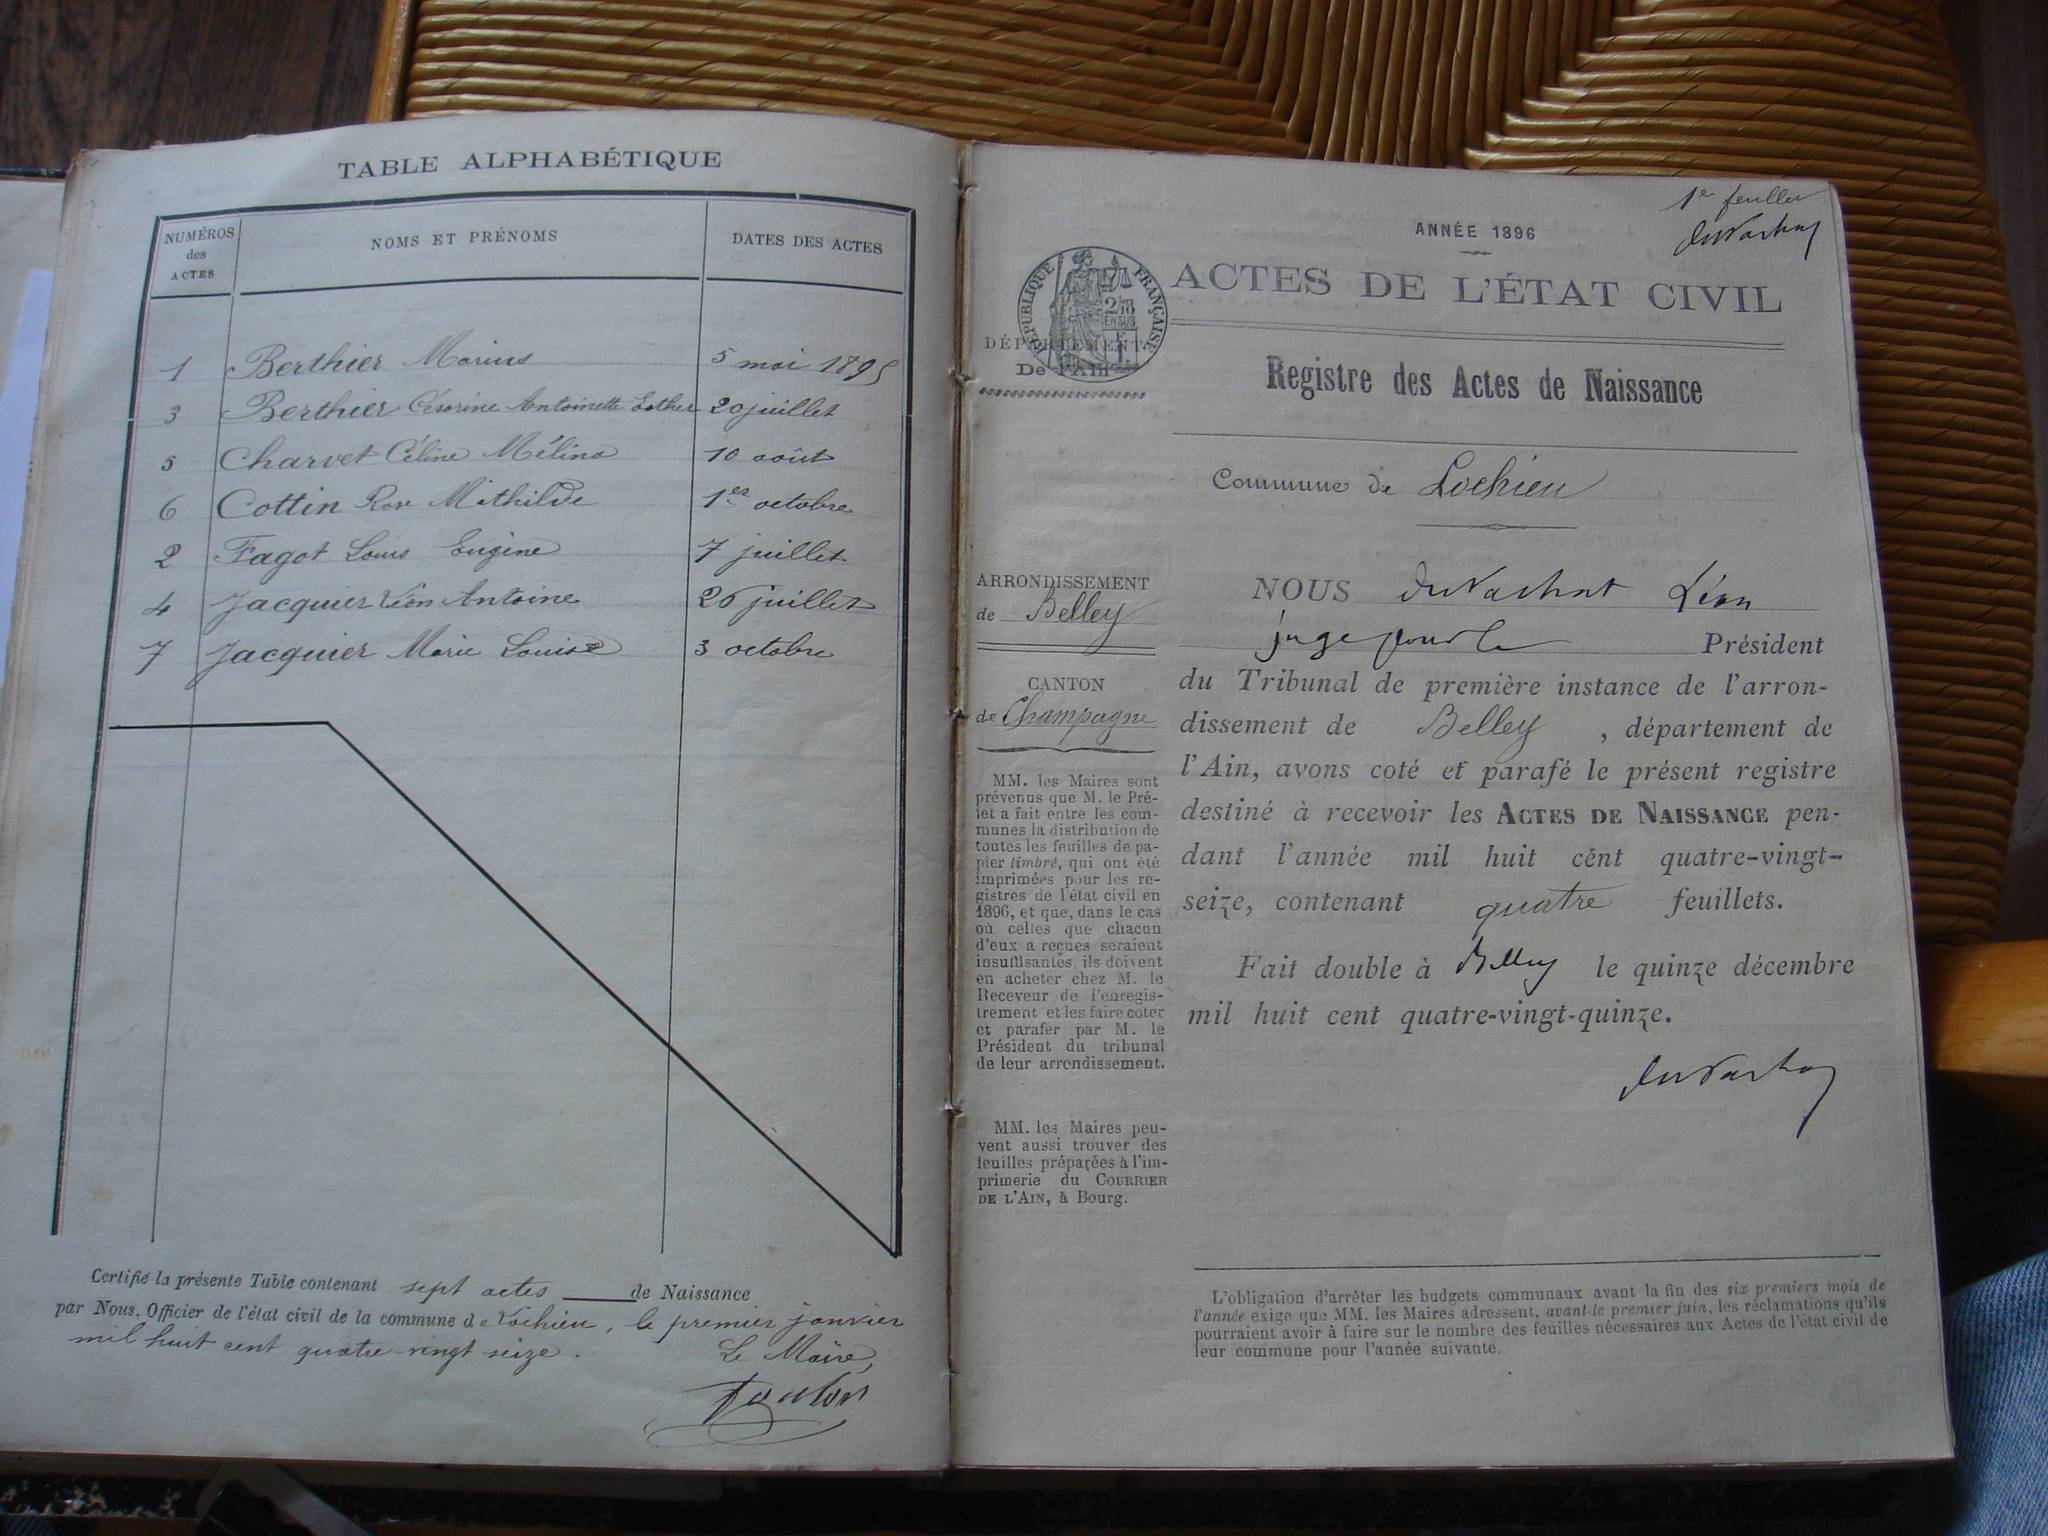 TABLE ALPHABÉTIQUE
NUMÉROS des ACTES
NOMS ET PRÉNOMS
DATES DES ACTES
1 Berthier Marius 5 mai 1895
3 Berthier Césarine Antoinette Esther 20 juillet
5 Charvet Céline Mélina 10 août
6 Cottin Rose Mathilde 1er octobre
2 Fagot Louis Eugène 7 juillet
4 Jacquier Léon Antoine 26 juillet
7 Jacquier Marie Louise 3 octobre
Certifié la présente Table contenant sept actes de Naissance
par Nous, Officier de l'état civil de la commune de Lochieu, le premier janvier
mil huit cent quatre-vingt seize.
Le Maire,
1er feuillet
ANNÉE 1896
ACTES DE L'ÉTAT CIVIL
RÉPUBLIQUE FRANÇAISE
DÉPARTEMENT
De l'Ain
Registre des Actes de Naissance
Commune de Lochieu
ARRONDISSEMENT
de Belley
CANTON
de Champagne
MM. les Maires sont
prévenus que M. le Pré-
fet a fait entre les com-
munes la distribution de
toutes les feuilles de pa-
pier timbré, qui ont été
imprimées pour les re-
gistres de l'état civil en
1896, et que, dans le cas
où celles que chacun
d'eux a reçues seraient
insuffisantes, ils doivent
en acheter chez M. le
Receveur de l'enregis-
trement et les faire coter
et parafer par M. le
Président du tribunal
de leur arrondissement.
MM. les Maires peu-
vent aussi trouver des
feuilles préparées à l'im-
primerie du COURRIER
DE L'AIN, à Bourg.
NOUS Duvachat Léon
juge pour le Président
du Tribunal de première instance de l'arron-
dissement de Belley, département de
l'Ain, avons coté et parafé le présent registre
destiné à recevoir les ACTES DE NAISSANCE pen-
dant l'année mil huit cent quatre-vingt-
seize, contenant quatre feuillets.
Fait double à Belley le quinze décembre
mil huit cent quatre-vingt-quinze.
L'obligation d'arrêter les budgets communaux avant la fin des six premiers mois de
l'année exige que MM. les Maires adressent, avant le premier juin, les réclamations qu'ils
pourraient avoir à faire sur le nombre des feuilles nécessaires aux Actes de l'état civil de
leur commune pour l'année suivante.